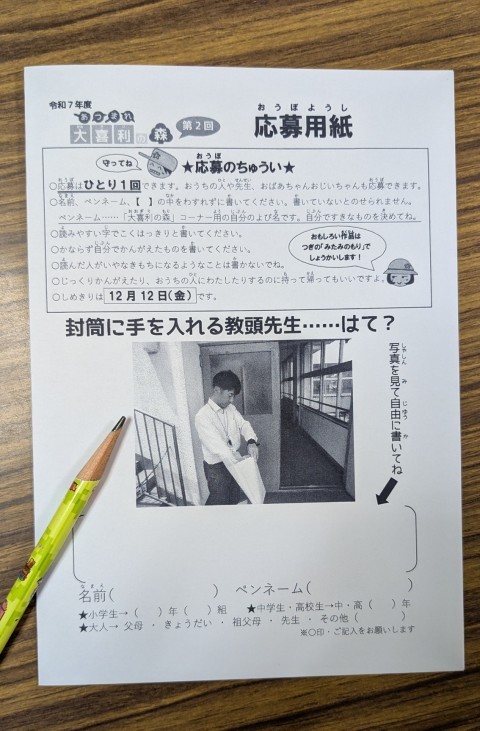 令和7年度
あつまれ
大喜利の森 第2回
おうぼようし
応募用紙
守ってね
おうぼ
★応募のちゅうい★
○応募はひとり1回できます。おうちの人や先生、おばあちゃんおじいちゃんも応募できます。
○名前、ペンネーム、【 】の中をわすれずに書いてください。書いていないとのせられません。
ペンネーム……「大喜利の森」コーナー用の自分のよび名です。自分ですきなものを決めてね。
○読みやすい字でこくはっきりと書いてください。
○かならず自分でかんがえたものを書いてください。
○読んだ人がいやなきもちになるようなことは書かないでね。
おもしろい作品は
つぎの「みたみのもり」で
しょうかいします!
○じっくりかんがえたり、おうちの人にわたしたりするのに持って帰ってもいいですよ。
○しめきりは 12月12日(金) です。
封筒に手を入れる教頭先生……はて?
しゃしん み じゆう か
写真を見て自由に書いてね
なまえ
名前( ) ペンネーム( )
★小学生→( )年( )組 ★中学生・高校生→中・高( )年
★大人→ 父母 ・ きょうだい ・ 祖父母 ・ 先生 ・ その他( )
※○印・ご記入をお願いします